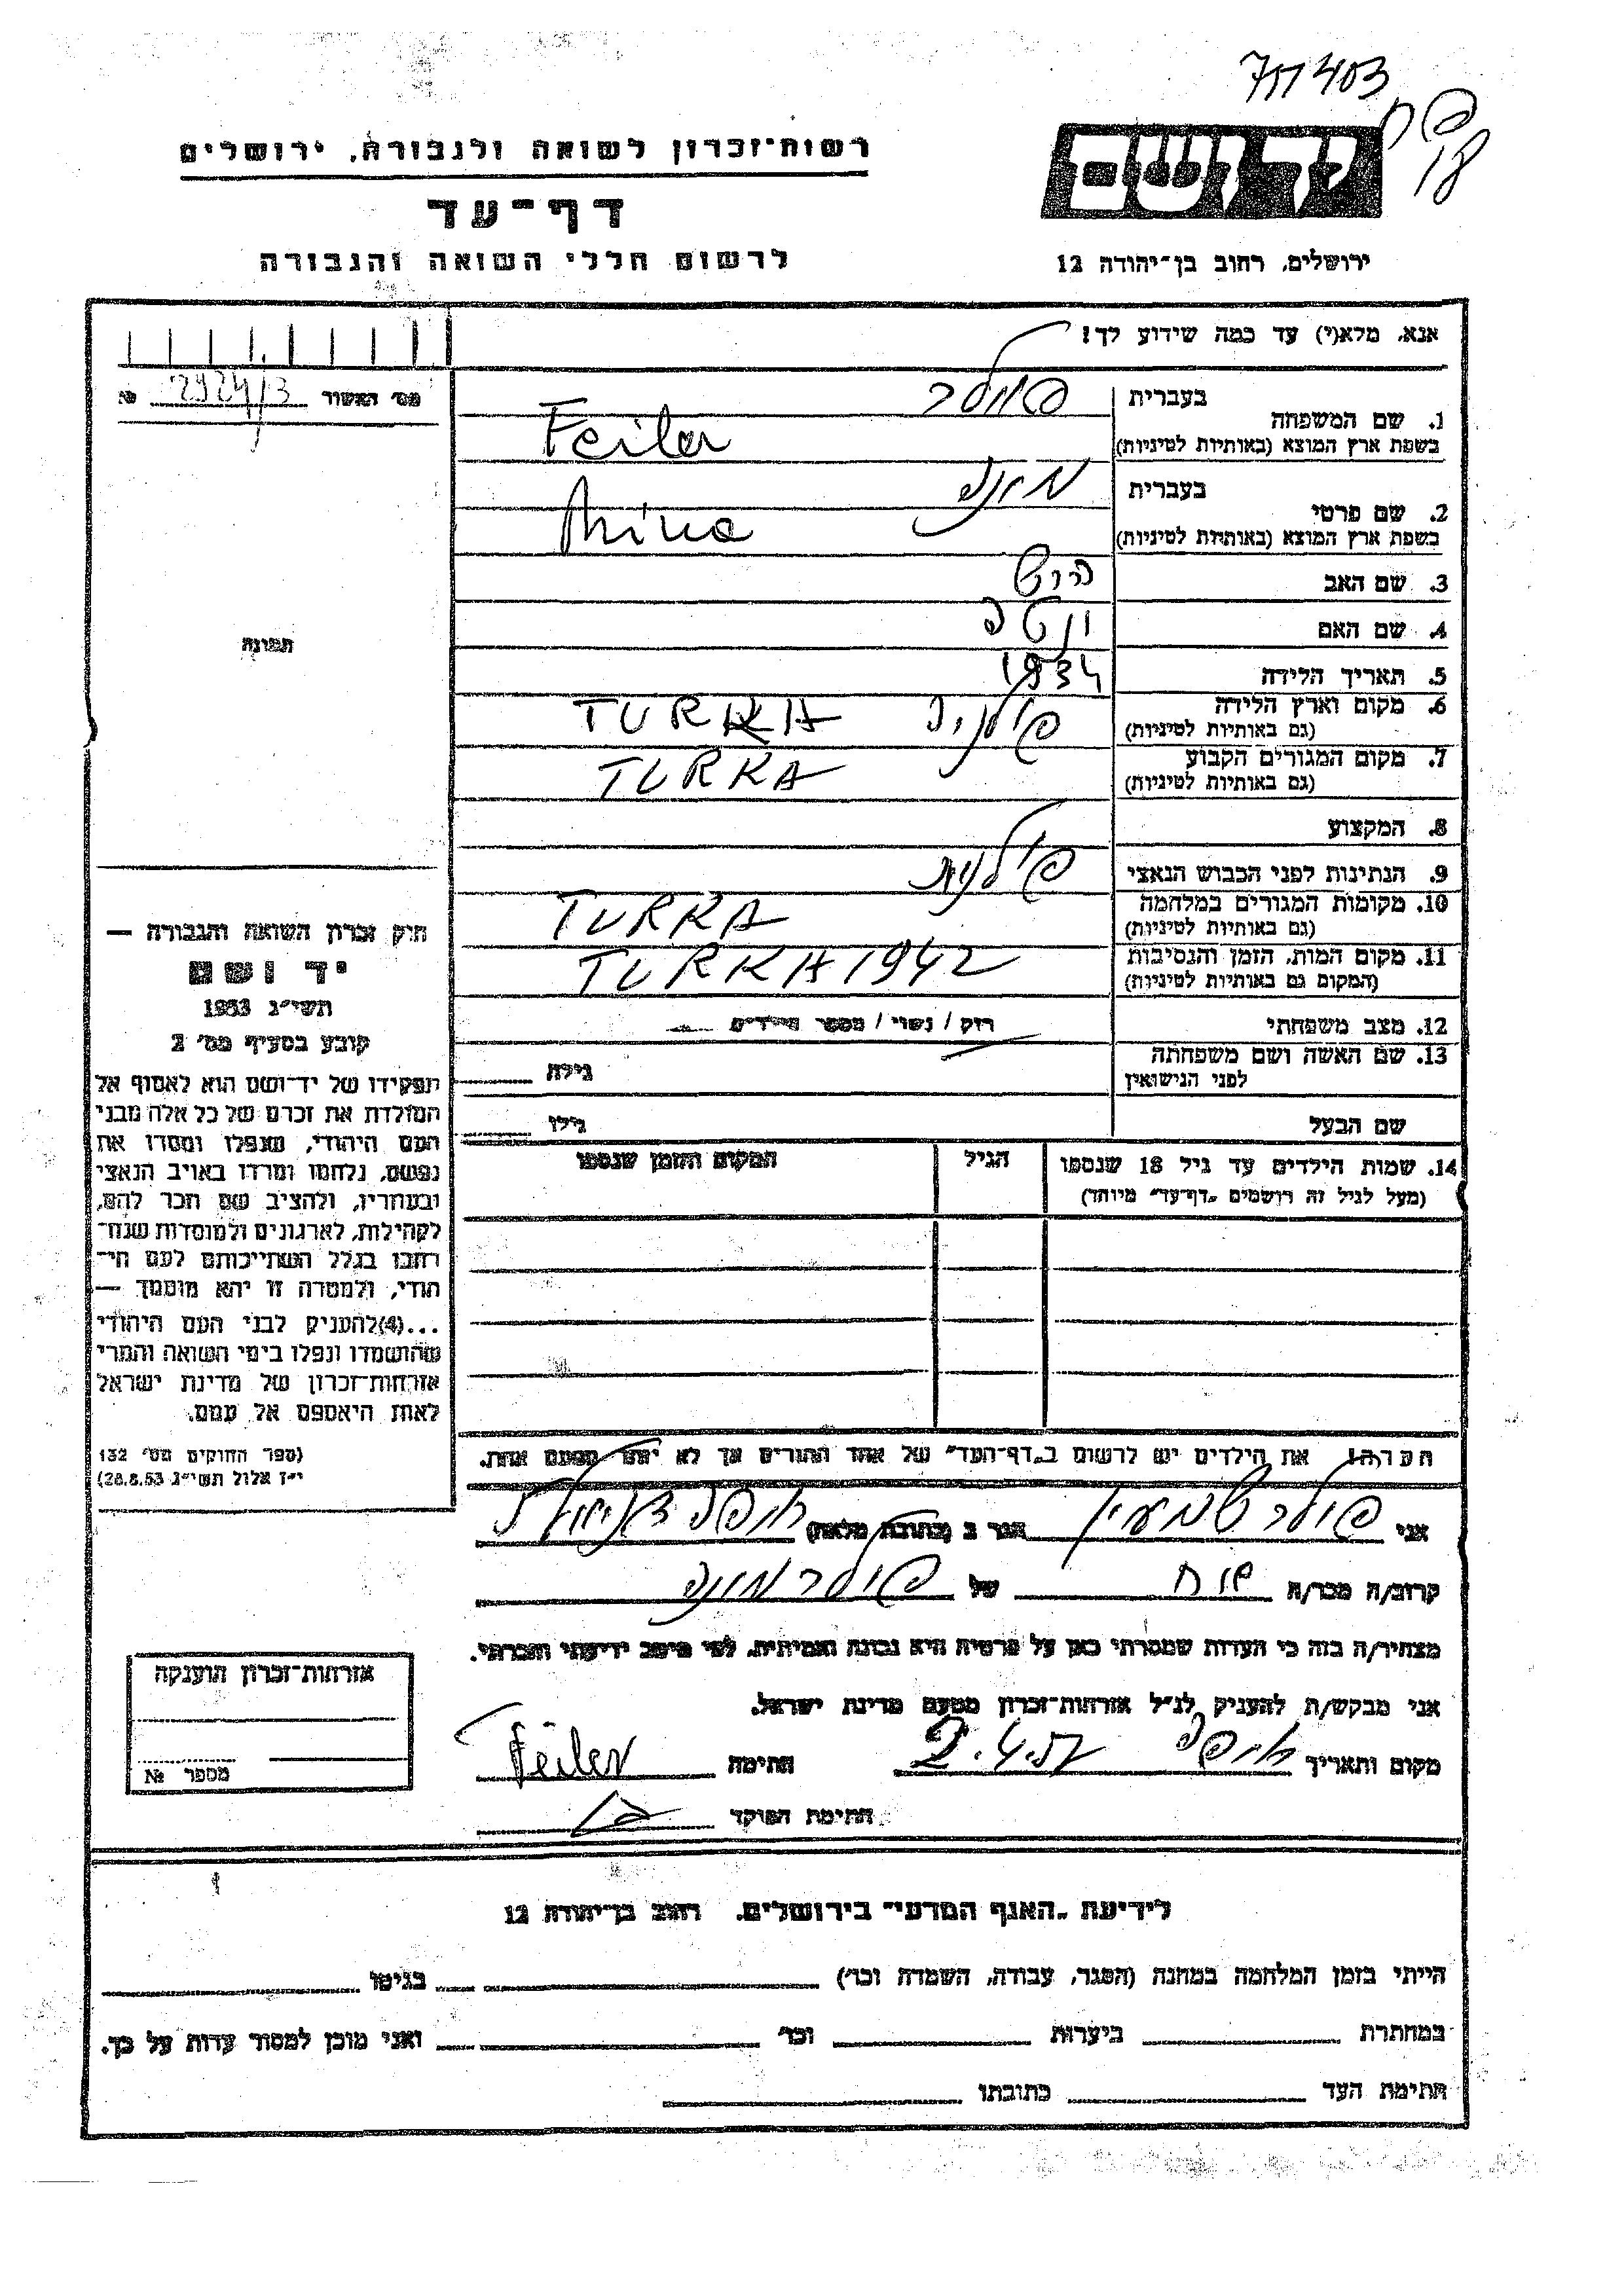 403
רשות־זכרון לשואה ולגבורה, ירושלים
יד ושם
דף־עד
לרשום חללי השואה והגבורה
ירושלים, רחוב בן־יהודה 12
אנא, מלא(י) עד כמה שידוע לך!
מס׳ האשור 2924/3 №
1. שם המשפחה בעברית פיילר
בשפת ארץ המוצא (באותיות לטיניות) Feiler
2. שם פרטי בעברית מינה
בשפת ארץ המוצא (באותיות לטיניות) Mina
3. שם האב הירש
4. שם האם
5. תאריך הלידה 1934
6. מקום וארץ הלידה פולניה TURKA
(גם באותיות לטיניות)
7. מקום המגורים הקבוע TURKA
(גם באותיות לטיניות)
8. המקצוע
9. הנתינות לפני הכבוש הנאצי פולנית
10. מקומות המגורים במלחמה TURKA
(גם באותיות לטיניות)
11. מקום המות, הזמן והנסיבות TURKA 1942
(המקום גם באותיות לטיניות)
12. מצב משפחתי רוק / נשוי / מספר הילדים
13. שם האשה ושם משפחתה גילה
לפני הנישואין
שם הבעל גילו
14. שמות הילדים עד גיל 18 שנספו הגיל המקום והזמן שנספו
(מעל לגיל זה רושמים „דף־עד״ מיוחד)
תמונה
חוק זכרון השואה והגבורה —
יד ושם
תשי״ג 1953
קובע בסעיף מס׳ 2
תפקידו של יד־ושם הוא לאסוף אל
המולדת את זכרם של כל אלה מבני
העם היהודי, שנפלו ומסרו את
נפשם, נלחמו ומרדו באויב הנאצי
ובעוזריו, ולהציב שם וזכר להם,
לקהילות, לארגונים ולמוסדות שנח־
רבו בגלל השתייכותם לעם הי־
הודי, ולמטרה זו יהא מוסמך —
...(4) להעניק לבני העם היהודי
שהושמדו ונפלו בימי השואה והמרי
אזרחות־זכרון של מדינת ישראל
לאות היאספם אל עמם.
(ספר החוקים מס׳ 132
י״ז אלול תשי״ג 28.8.53)
הערה: את הילדים יש לרשום ב„דף־העד״ של אחד ההורים אך לא יותר מפעם אחת.
אני פיילר שמעון הגר ב (כתובת מלאה) חיפה
קרוב/ה מכר/ה אח של פיילר מינה
מצהיר/ה בזה כי העדות שמסרתי כאן על פרטיה היא נכונה ואמיתית, לפי מיטב ידיעתי והכרתי.
אני מבקש/ת להעניק לנ״ל אזרחות־זכרון מטעם מדינת ישראל.
מקום ותאריך חיפה 2.4.57 חתימה Feiler
חתימת הפוקד
אזרחות־זכרון הוענקה
מספר №
לידיעת „האגף המדעי״ בירושלים, רחוב בן־יהודה 12
הייתי בזמן המלחמה במחנה (הסגר, עבודה, השמדה וכו׳) בגיטו
במחתרת ביערות וכו׳ ואני מוכן למסור עדות על כך.
חתימת העד כתובתו